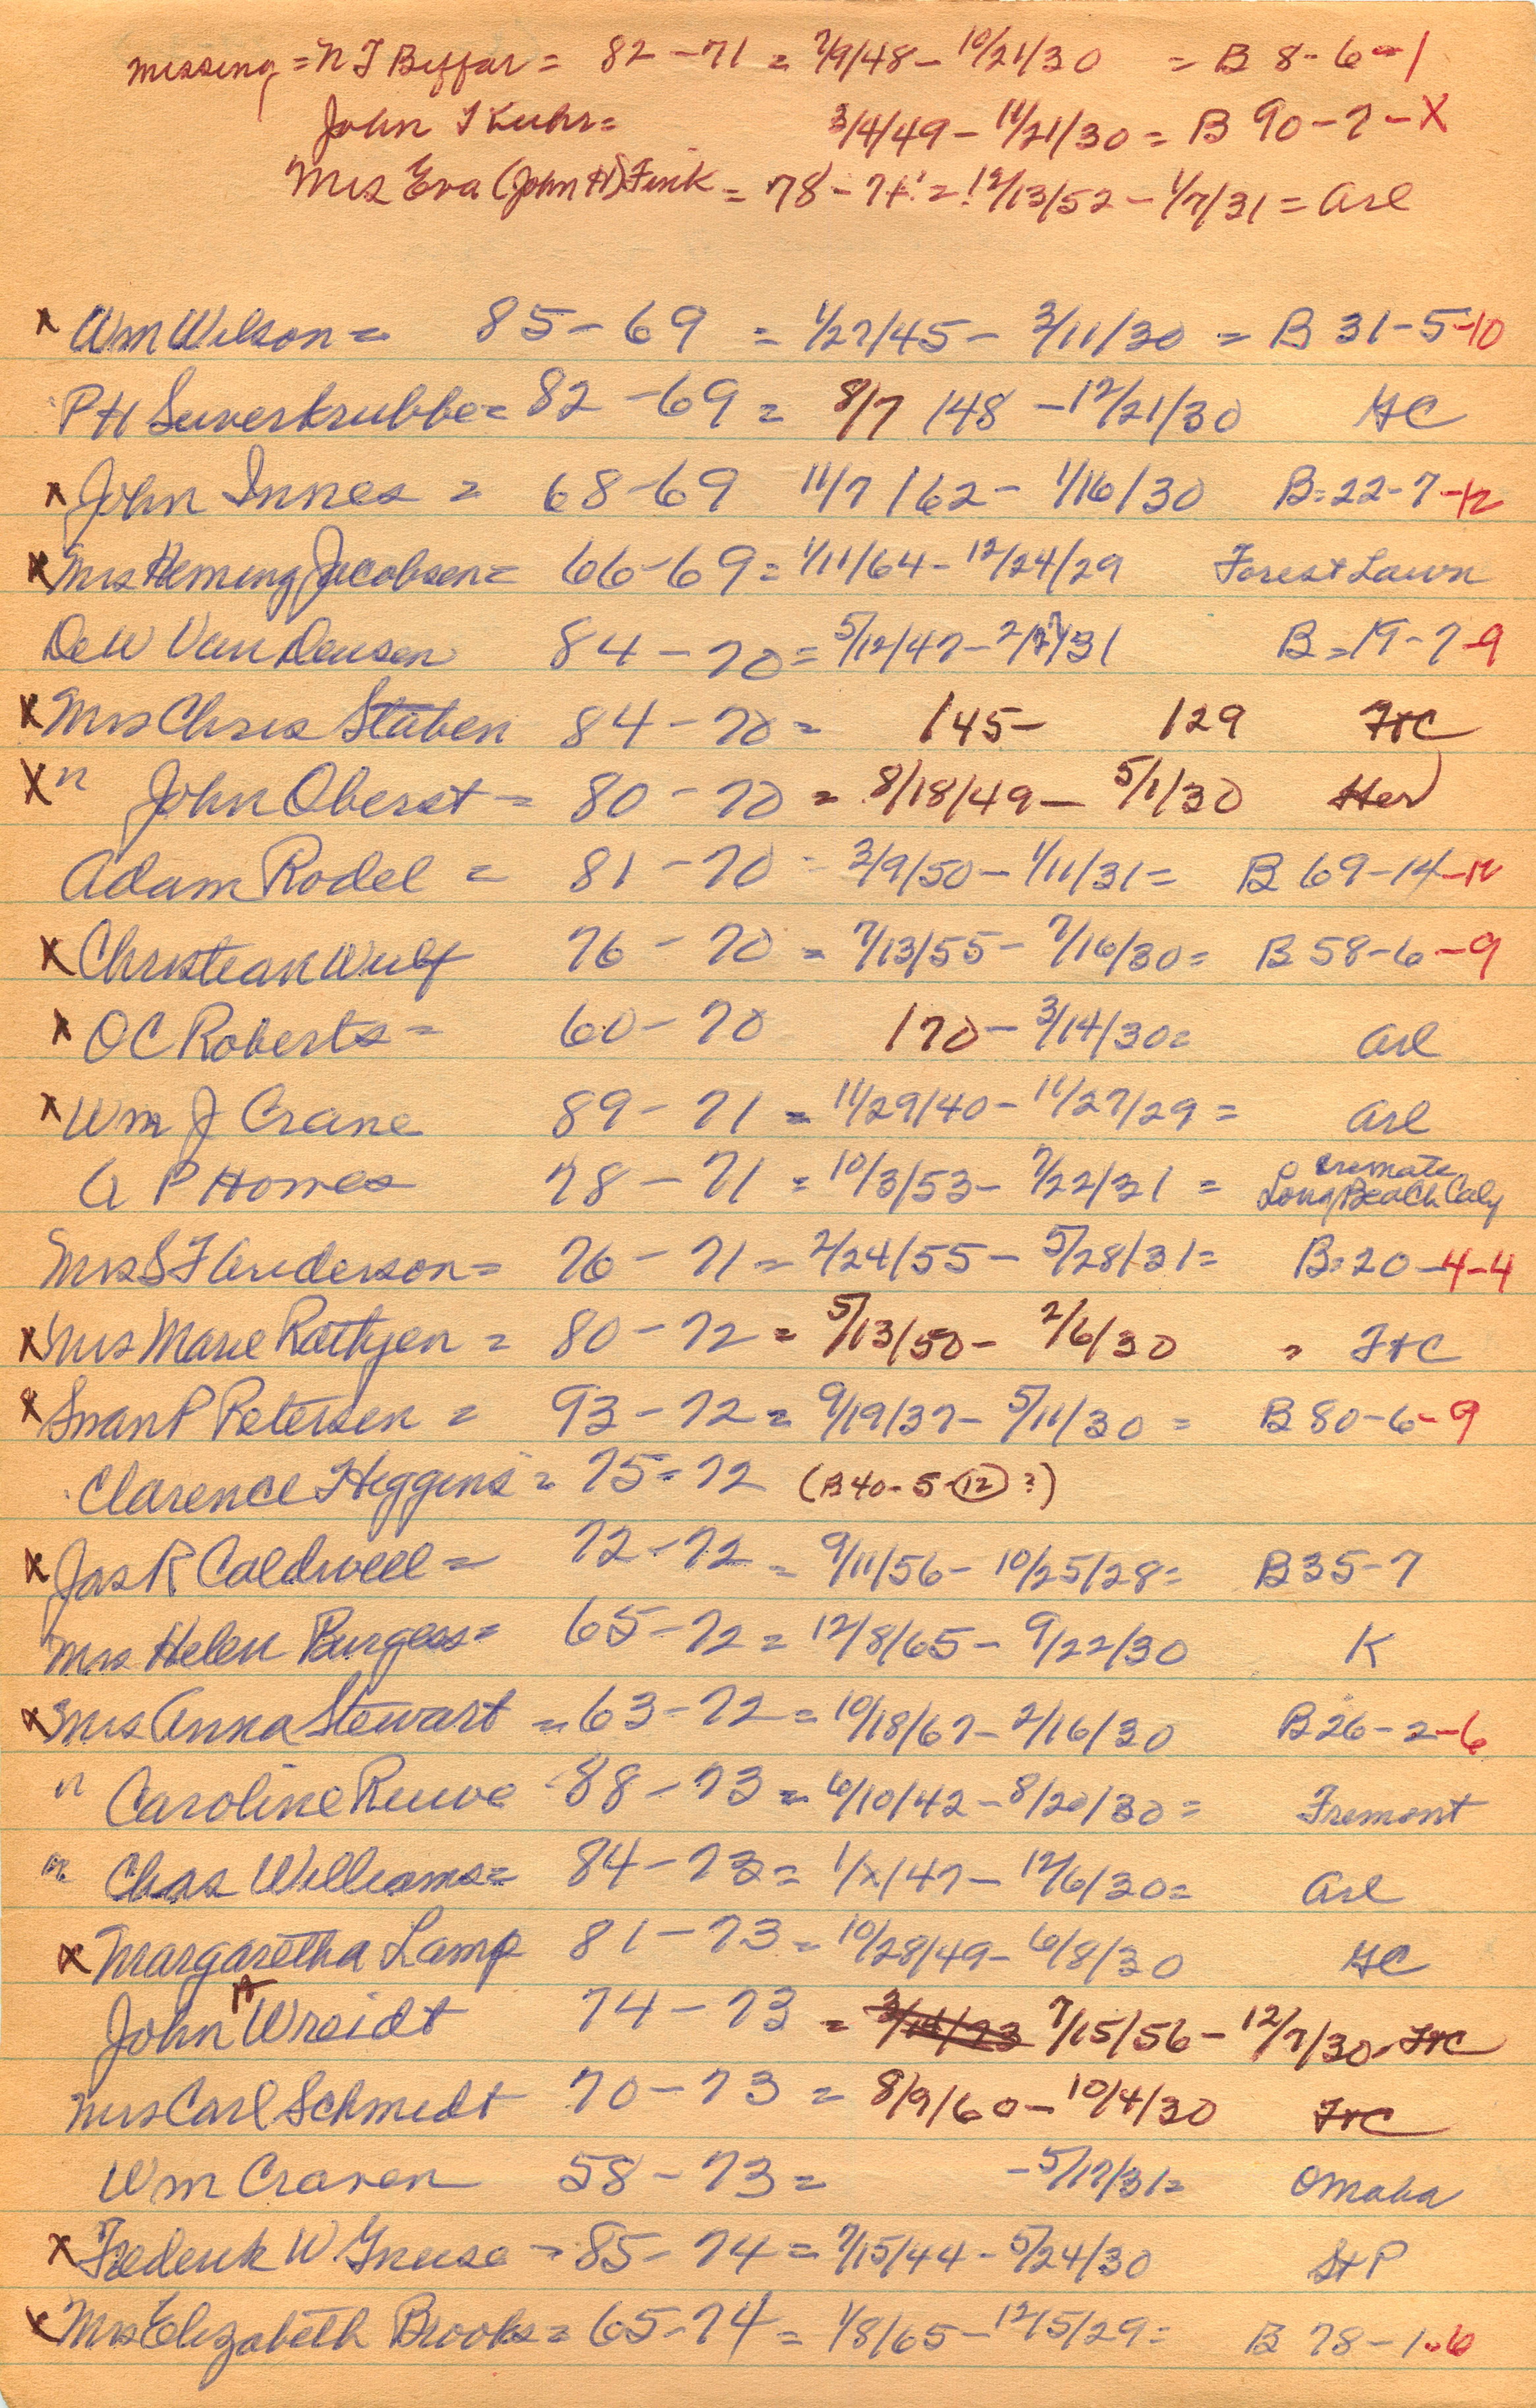 missing = N J Biffar = 82 - 71 = 7/9/48 - 10/21/30 = B 8 - 6 - 1
John J Kuhr = 3/4/49 - 11/21/30 = B 90 - 7 - X
Mrs Eva (John H) Fink = 78 - 71 = 12/13/52 - 1/7/31 = Arl
x Wm Wilson = 85 - 69 = 1/27/45 - 3/11/30 = B 31 - 5 - 10
P H Suverkrubbe = 82 - 69 = 8/7/48 - 12/21/30 GC
x John Innes = 68 - 69 11/7/62 - 1/16/30 B = 22 - 7 - 12
x Mrs Heming Jacobsen = 66 - 69 = 1/11/64 - 12/24/29 Forest Lawn
DeW Van Deusen 84 - 70 = 5/12/47 - /31 B = 19 - 7 - 9
x Mrs Chris Staben 84 - 70 = /45 - /29 FtC
X " John Oberst = 80 - 70 = 8/18/49 - 5/1/30 Her
Adam Rodel = 81 - 70 - 2/9/50 - 1/11/31 = B 69 - 14 - 12
x Christean Wulf 76 - 70 = 7/13/55 - 7/16/30 = B 58 - 6 - 9
x O C Roberts = 60 - 70 /70 - 3/14/30 = Arl
x Wm J Crane 89 - 71 = 11/29/40 - 11/27/29 = Arl
A P Howes 78 - 71 = 10/3/53 - 7/22/31 = Cremate Long Beach Calif
Mrs S F Anderson = 76 - 71 = 2/24/55 - 5/28/31 = B = 20 - 4 - 4
x Mrs Marie Rathjen = 80 - 72 = 5/13/50 - 2/6/30 = FtC
x Swan P Petersen = 93 - 72 = 9/19/37 - 5/11/30 = B 80 - 6 - 9
Clarence Higgins = 75 - 72 (B 40 - 5 - 12 ?)
x Jas R Caldwell = 72 - 72 = 9/11/56 - 10/25/28 = B 35 - 7
Mrs Helen Burgess = 65 - 72 = 12/8/65 - 9/22/30 K
x Mrs Anna Stewart = 63 - 72 = 10/18/67 - 2/16/30 B 26 - 2 - 6
" Caroline Ruwe 88 - 73 = 6/10/42 - 8/20/30 = Fremont
" Chas Williams = 84 - 73 = 1/x/47 - 12/6/30 = Arl
x Margaretha Lamp 81 - 73 = 10/28/49 - 6/8/30 GC
John A Wreidt 74 - 73 = 3/14/73 7/15/56 - 12/7/30 - FtC
Mrs Carl Schmidt 70 - 73 = 8/9/60 - 10/4/30 FtC
Wm Craven 58 - 73 = - 5/17/31 = Omaha
x Frederik W Gneuse - 85 - 74 = 7/15/44 - 5/24/30 St P
x Mrs Elizabeth Brooks = 65 - 74 = 1/8/65 - 12/5/29 = B 78 - 1 - 6